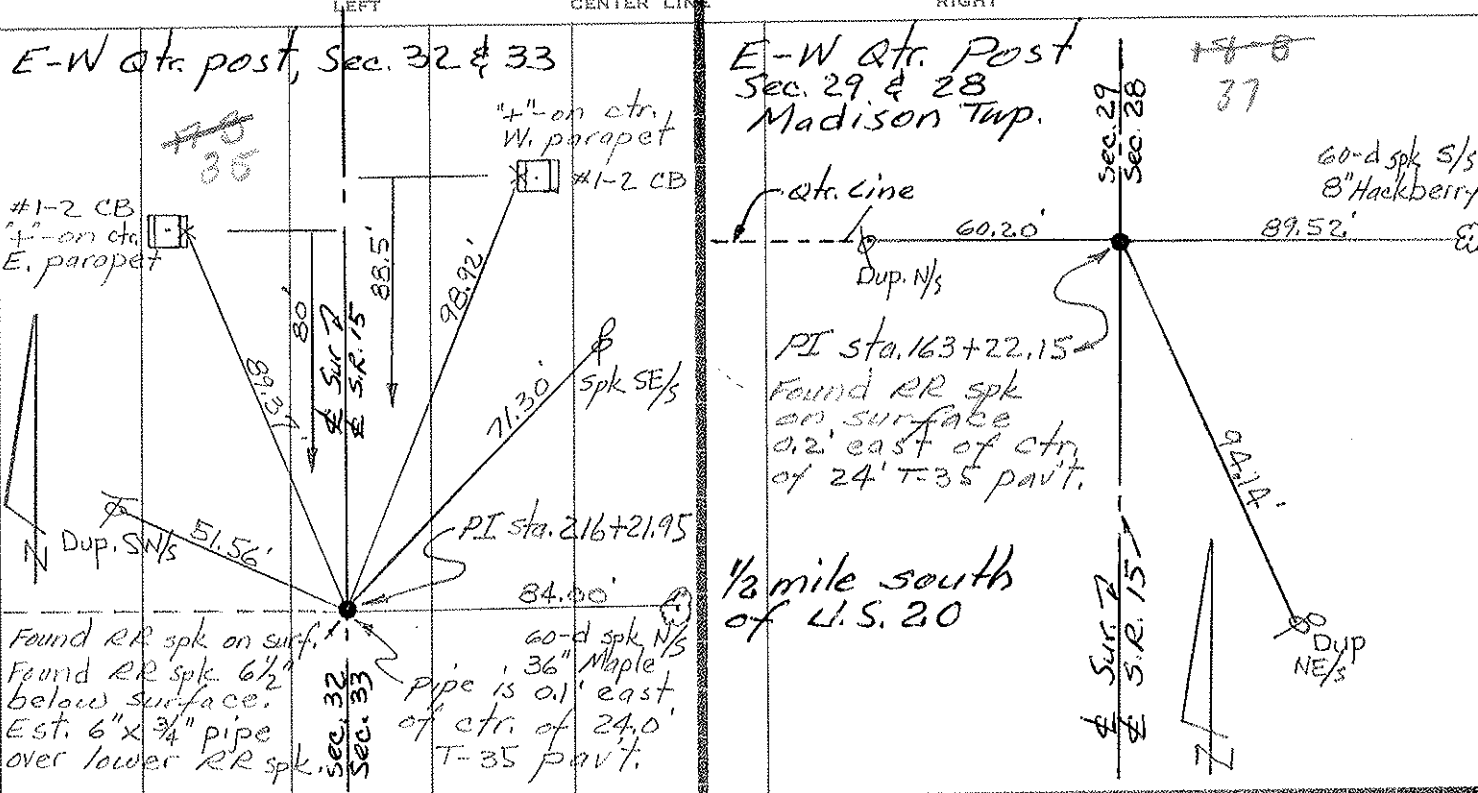 LEFT
CENTER LINE
RIGHT
E-W Qtr. post, Sec. 32 & 33
35
"+"-on ctr.
W. parapet
#1-2 CB
#1-2 CB
"+"-on ctr.
E. parapet
80'
88.5'
98.92'
89.37'
℄ Sur. &
℄ S.R. 15
71.30'
spk SE/s
N
Dup. SW/s
51.56'
PI sta. 216+21.95
84.00'
60-d spk N/s
36" Maple
Found RR spk on surf.
Found RR spk 6½"
below surface.
Est. 6" x ¾" pipe
over lower RR spk.
Sec. 32
Sec. 33
pipe is 0.1' east
of ctr. of 24.0'
T-35 pav't.
E-W Qtr. Post
Sec. 29 & 28
Madison Twp.
37
Sec. 29
Sec. 28
60-d spk S/s
8" Hackberry
Qtr. Line
60.20'
89.52'
Dup. N/s
PI sta. 163+22.15
Found RR spk
on surface
0.2' east of ctr.
of 24' T-35 pav't.
94.14'
½ mile south
of U.S. 20
℄ Sur. &
℄ S.R. 15
N
Dup
NE/s